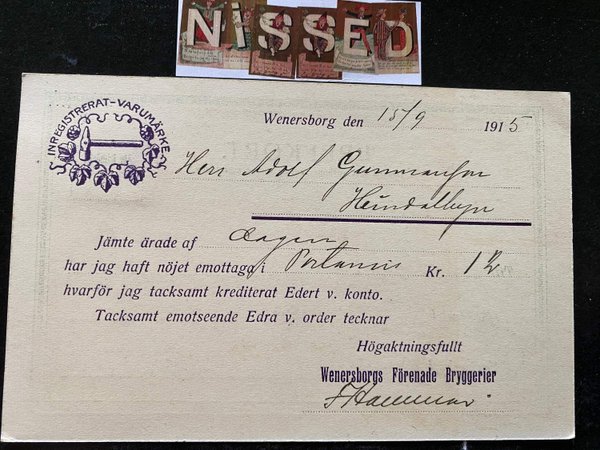 NISSED
INREGISTRERAT-VARUMÄRKE
Wenersborg den 15/9 1915
Herr Adolf Gunnarson
Jämte ärade af dagen
har jag haft nöjet emottaga i Kr. 12
hvarför jag tacksamt krediterat Edert v. konto.
Tacksamt emotseende Edra v. order tecknar
Högaktningsfullt
Wenersborgs Förenade Bryggerier